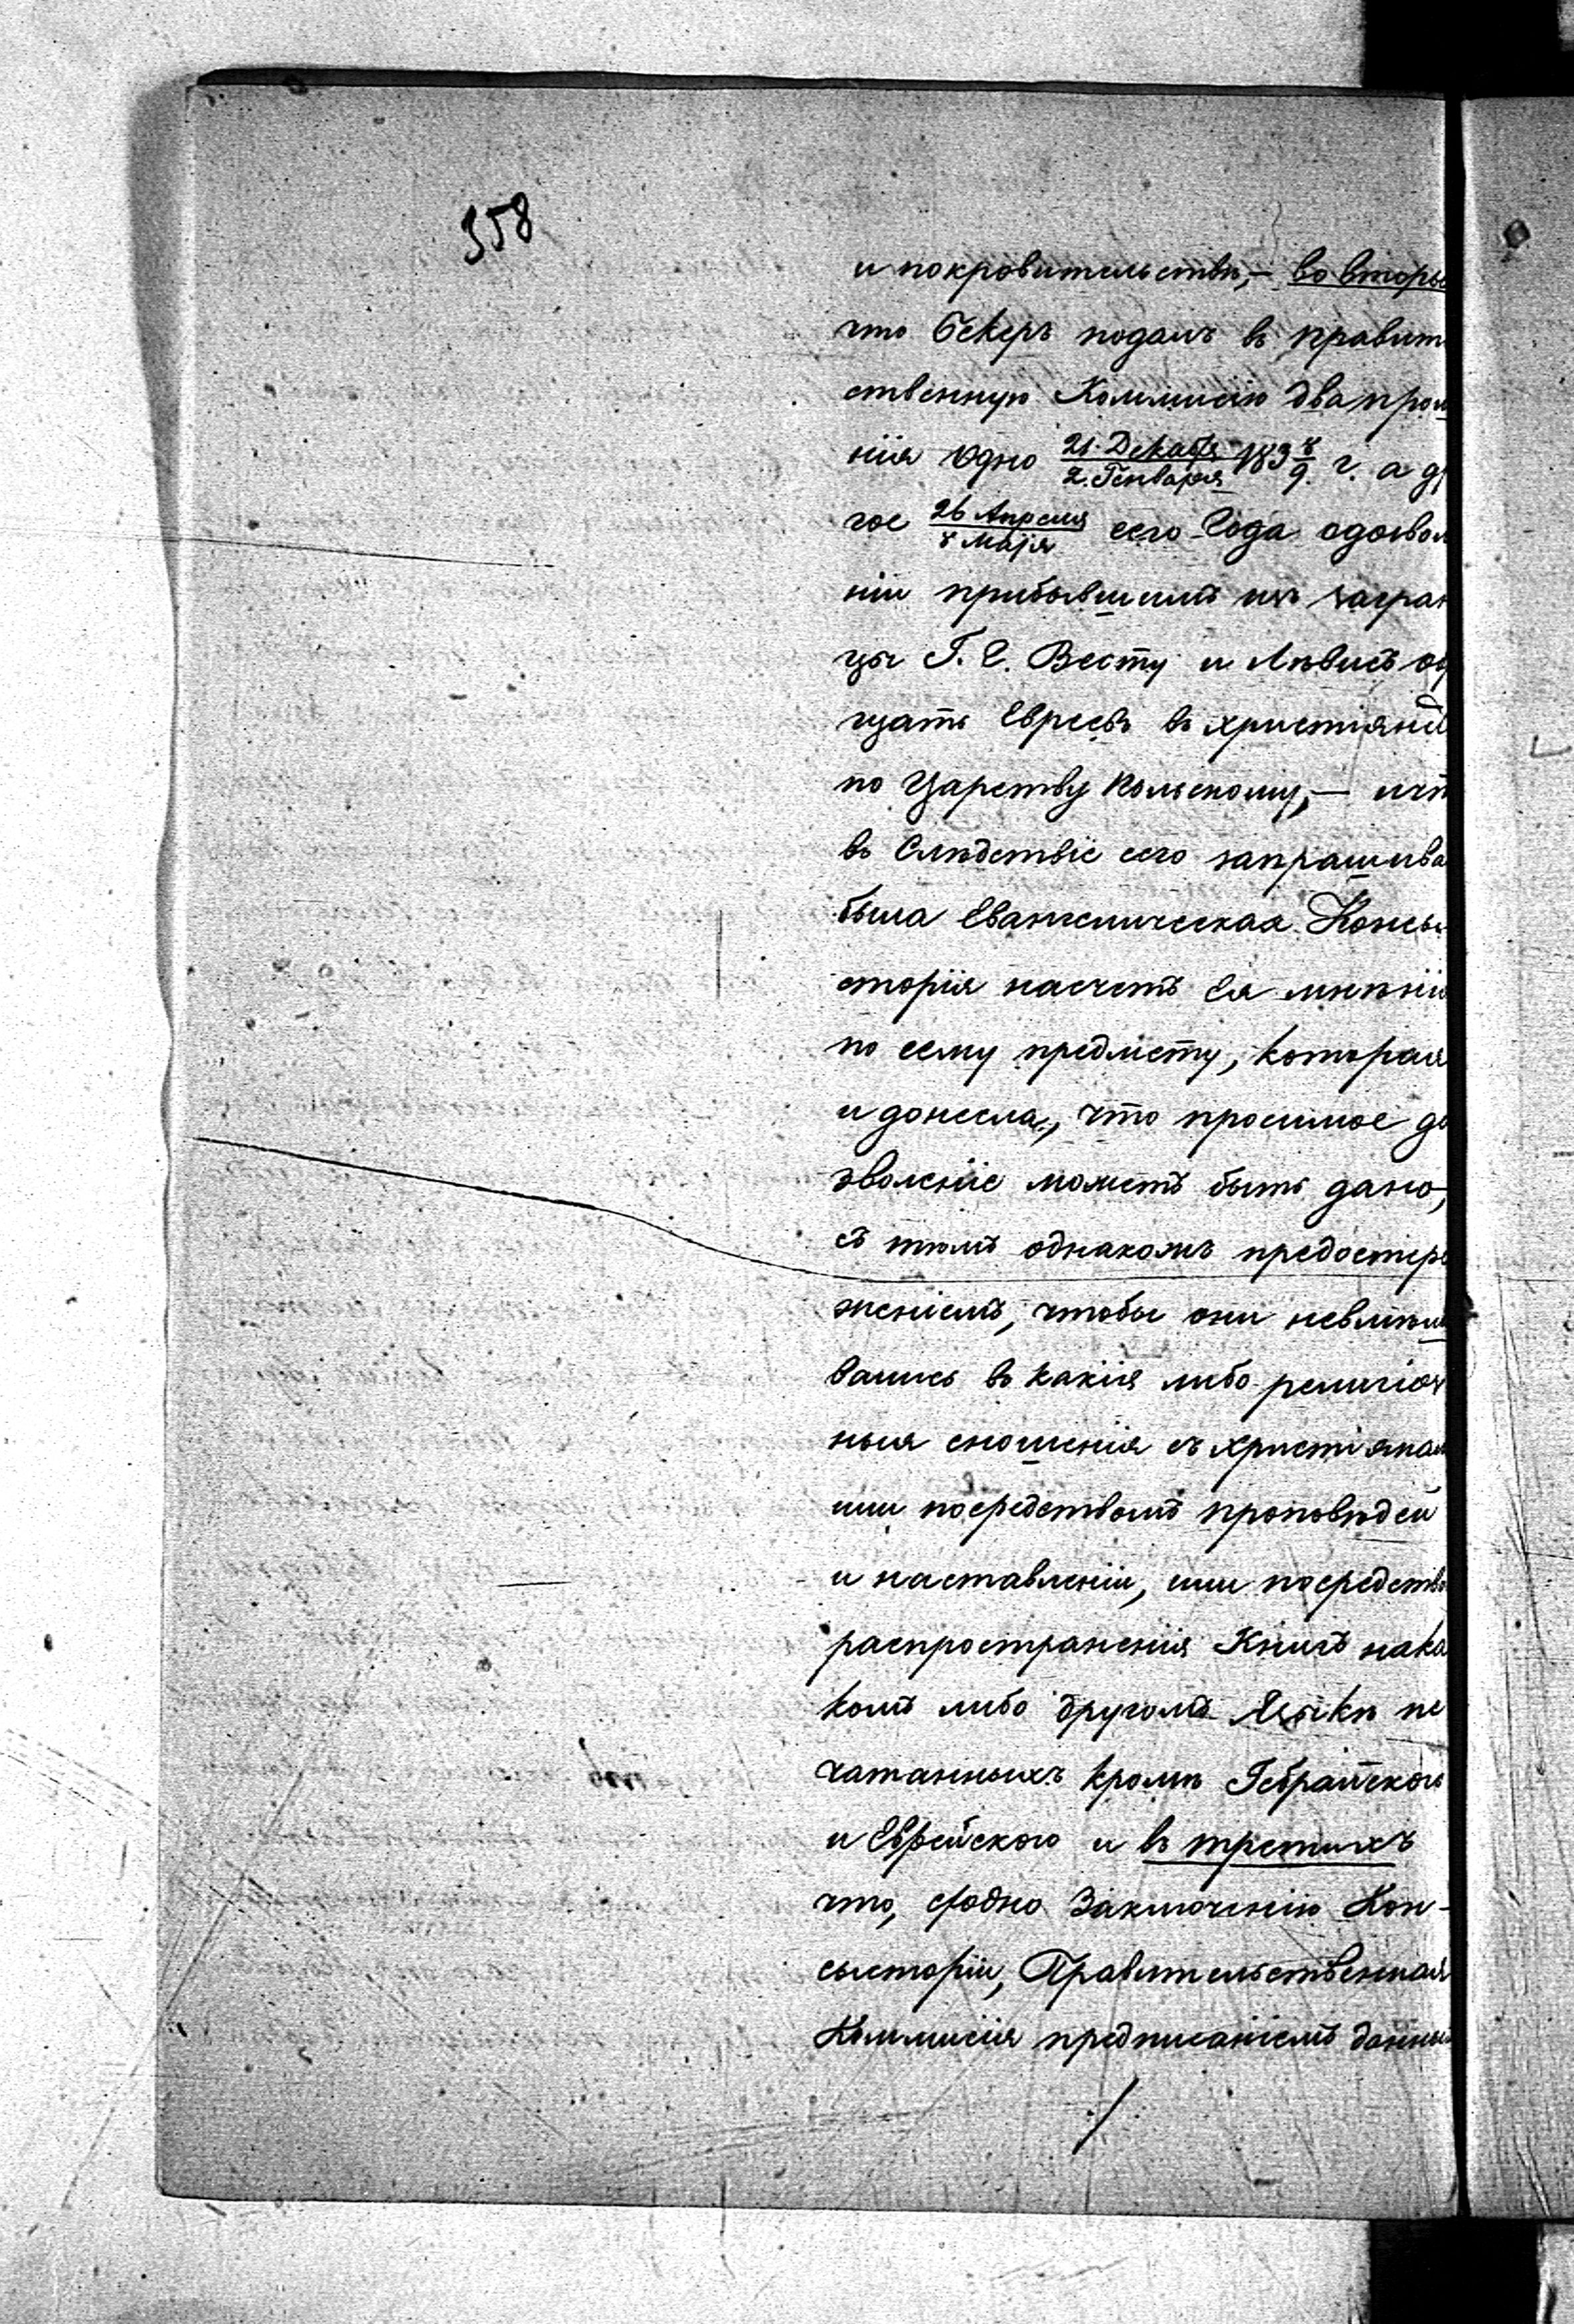 358
и покровительствѣ, — во вторы
что Бекеръ подалъ въ правит
ственную Коммисію два прош
нія одно 21. Декабря / 2. Генваря 183 8/9. г. а др
гое 26 Апреля / 8 Маія сего Года о дозвол
ніи прибывшимъ изъ загран
цы Г. С. Весту и Лѣвисъ об
щать Евреевъ въ христіянс
по Царству Польскому, — и чт
въ Слѣдствіе сего запрашива
была Евангелическая Консы
сторія насчетъ Ея мнѣнію
по сему предмету, которая
и донесла, что просимое до
зволеніе можетъ быть дано,
съ тѣмъ однакожъ предостере
женіемъ, чтобы они невмѣши
вались въ какія либо религіоз
ныя сношенія съ христіянам
или посредствомъ проповѣдей
и наставленіи, или посредство
распространенія Книгъ нака
комъ либо другомъ Языкѣ пе
чатанныхъ кромѣ Гебрайского
и Еврейского и въ третихъ
что, сходно Заключенію Кон-
сысторіи, Правительственная
Коммисія предписаніемъ данны
./.